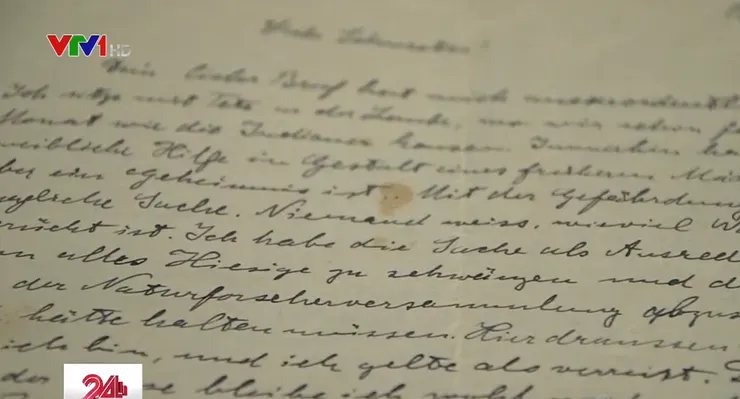 VTV1 HD
Liebe Schwester!
Dein lieber Brief hat mich
Ich sitze mit Tete in der Laube, wo wir schon
Monat wie die Indianer hausen. Immerhin
weibliche Hilfe in Gestalt eines früheren
ber ein Geheimnis ist. Mit der Gefährdung
Suche. Niemand weiss, wieviel
rückt ist. Ich habe die Sache als Ausred
n alles Hiesige zu schwänzen und
der Naturforscherversammlung abzus
hätte halten müssen. Hier draussen
ich bin, und ich gelte als verreist.
bleibe ich wohl
24